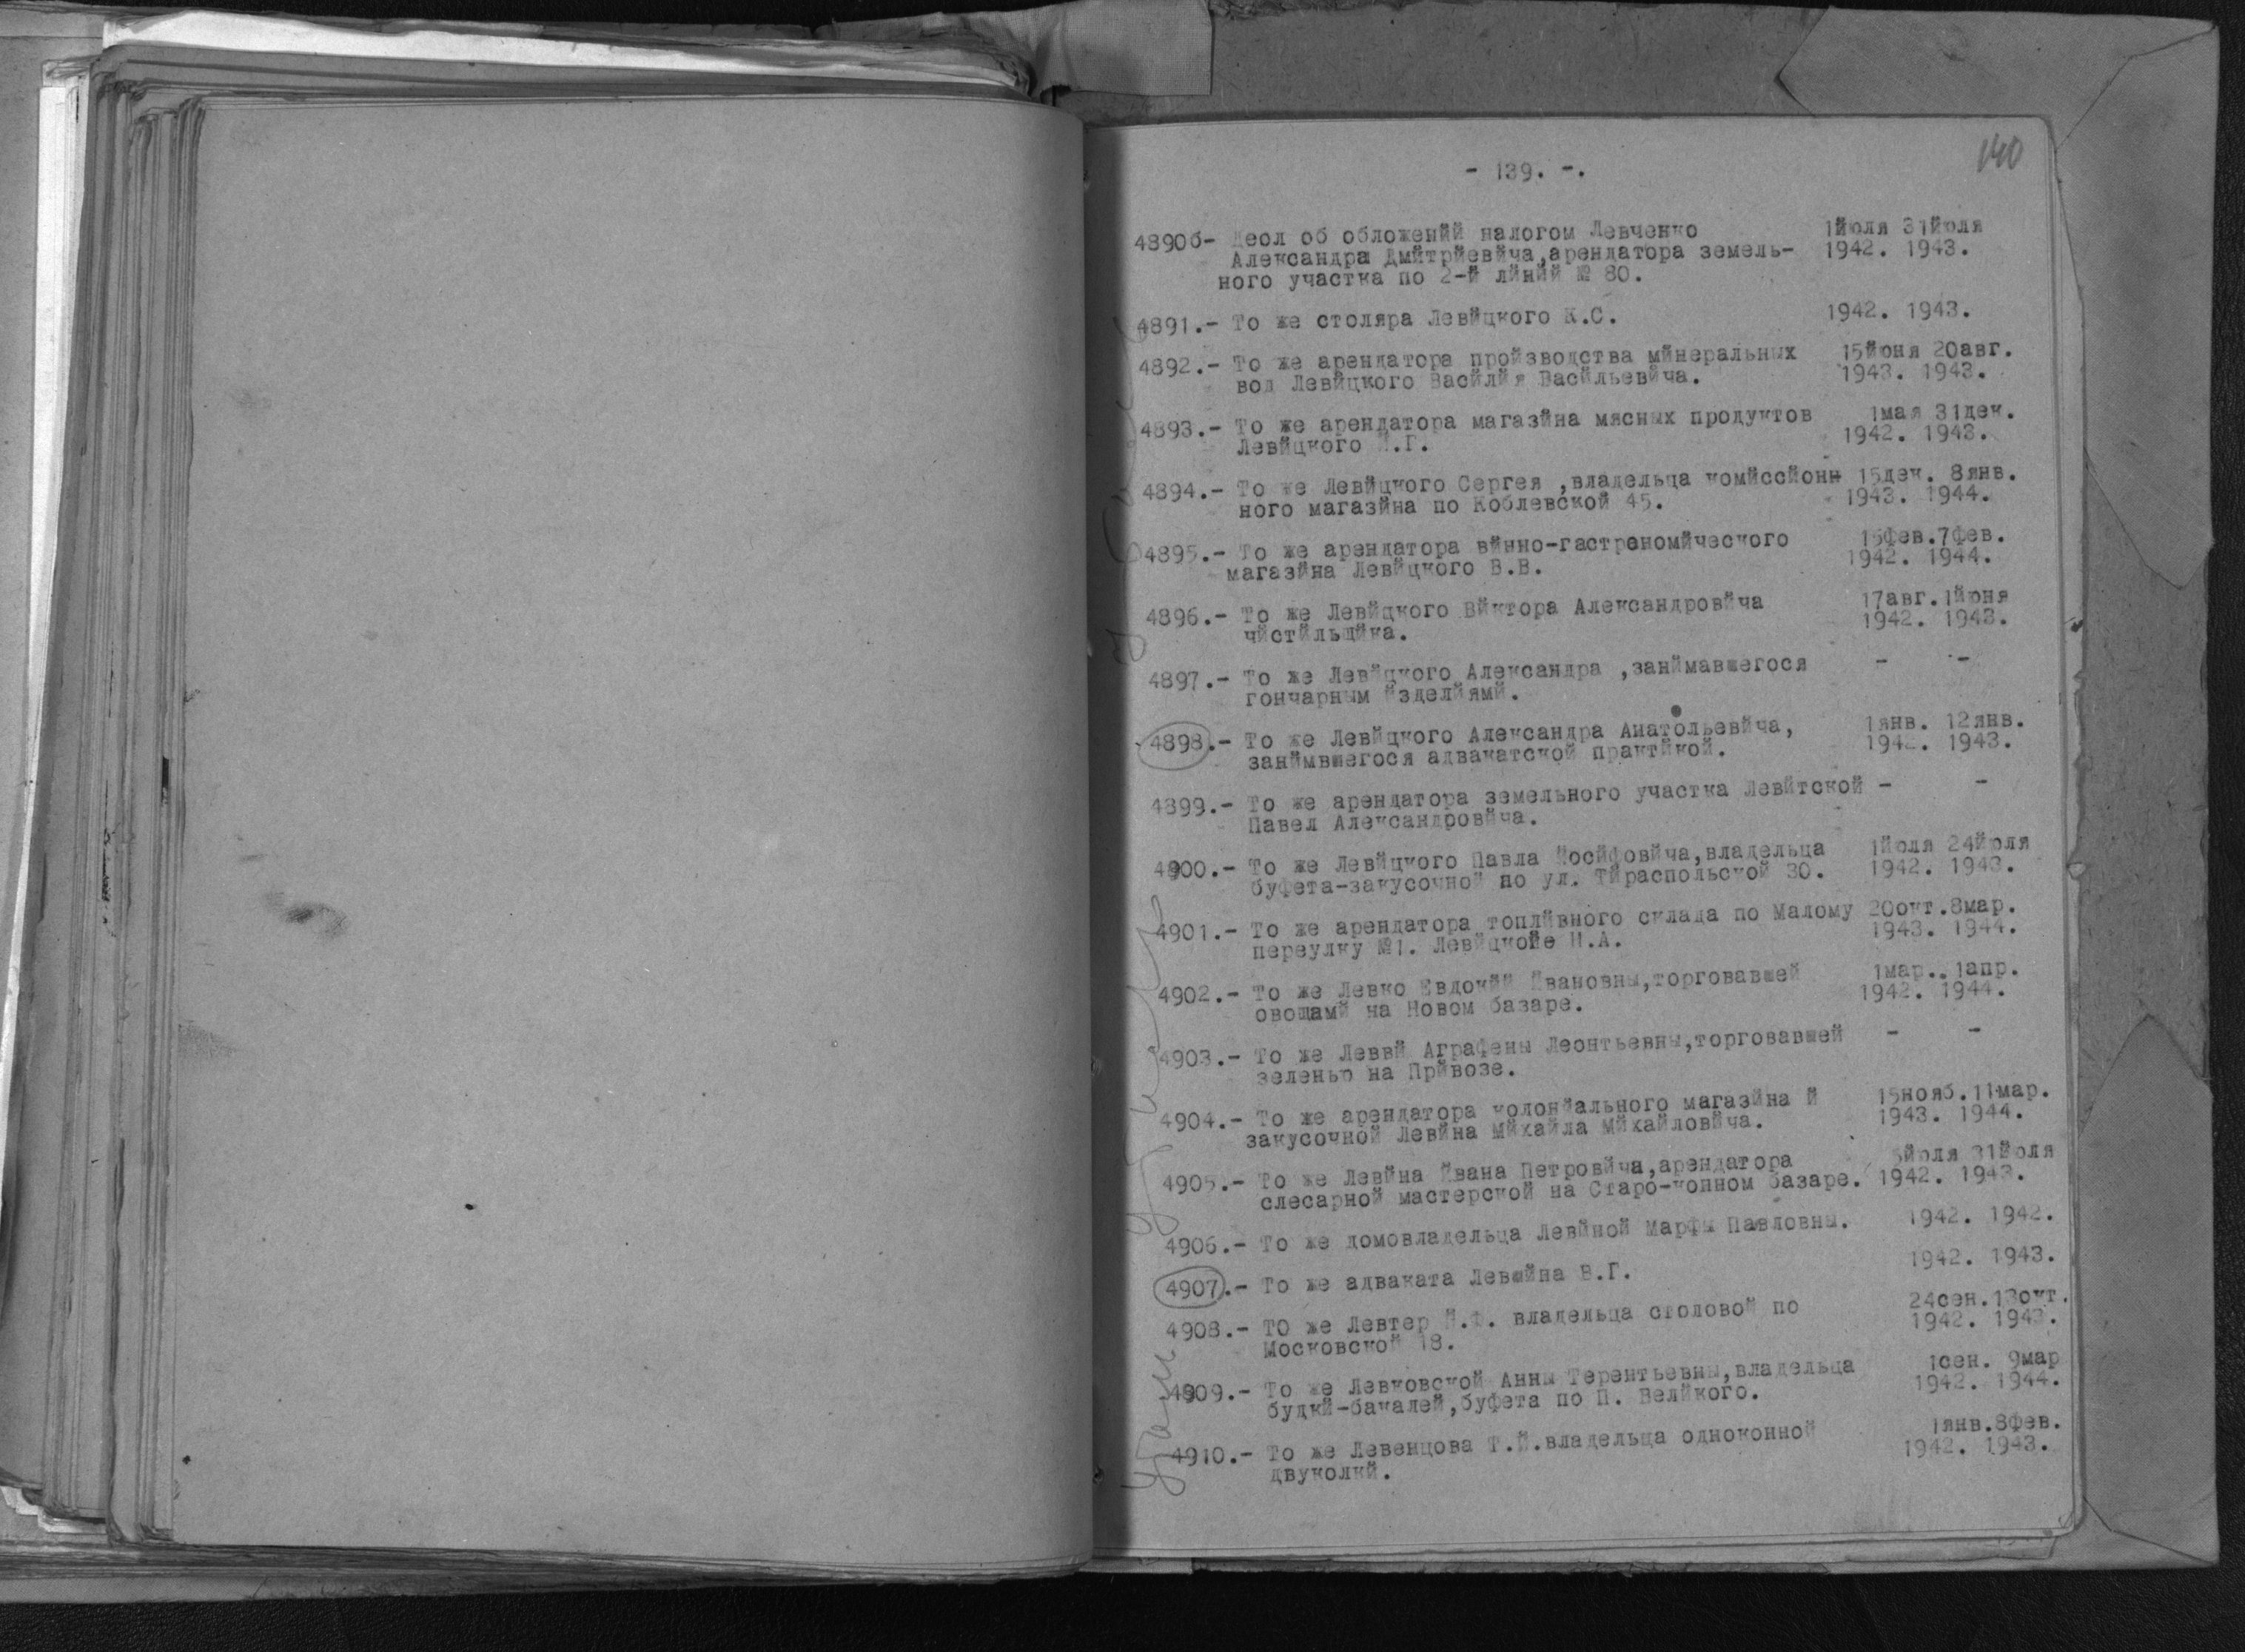 140
- 139. -.
4890б- Деол об обложенйй налогом Левченко 1йюля 31йюля
Александра Дмйтрйевйча,арендатора земель- 1942. 1943.
ного участка по 2-й лйнйй № 80.
4891.- То же столяра Левйцкого К.С. 1942. 1943.
4892.- То же арендатора пройзводства мйнеральных 15йюня 20авг.
вод Левйцкого Васйлйя Васйльевйча. 1943. 1943.
4893.- То же арендатора магазйна мясных продуктов 1мая 31дек.
Левйцкого Й.Г. 1942. 1943.
4894.- То же Левйцкого Сергея ,владельца комйссйонн 15дек. 8янв.
ного магазйна по Коблевской 45. 1943. 1944.
4895.- То же арендатора вйнно-гастрономйческого 15фев.7фев.
магазйна Левйцкого В.В. 1942. 1944.
4896.- То же Левйцкого Вйктора Александровйча 17авг.1йюня
чйстйльщйка. 1942. 1943.
4897.- То же Левйцкого Александра ,занймавшегося - -
гончарным йзделйямй.
4898.- То же Левйцкого Александра Анатольевйча, 1янв. 12янв.
занймвшегося адвакатской практйкой. 1942. 1943.
4899.- То же арендатора земельного участка Левйтской - -
Павел Александровйча.
4900.- То же Левйцкого Павла Йосйфовйча,владельца 1йюля 24йюля
буфета-закусочной по ул. Тйраспольской 30. 1942. 1943.
4901.- То же арендатора топлйвного склада по Малому 20окт.8мар.
переулку №1. Левйцкойе Н.А. 1943. 1944.
4902.- То же Левко Евдокйй Йвановны,торговавшей 1мар.. 1апр.
овощамй на Новом базаре. 1942. 1944.
4903.- То же Леввй Аграфены Леонтьевны,торговавшей - -
зеленью на Прйвозе.
4904.- То же арендатора колонйального магазйна й 15нояб.11мар.
закусочной Левйна Мйхайла Мйхайловйча. 1943. 1944.
4905.- То же Левйна Йвана Петровйча,арендатора 5йюля 31йюля
слесарной мастерской на Старо-конном базаре. 1942. 1943.
4906.- То же домовладельца Левйной Марфы Павловны. 1942. 1942.
4907.- То же адваката Левшйна В.Г. 1942. 1943.
4908.- ТО же Левтер Й.Ф. владельца столовой по 24сен.13окт.
Московской 18. 1942. 1943.
4909.- То же Левковской Анны Терентьевны,владельца 1сен. 9мар
будкй-бакалей,буфета по П. Велйкого. 1942. 1944.
4910.- То же Левенцова Т.Й.владельца одноконной 1янв.8фев.
двуколкй. 1942. 1943.